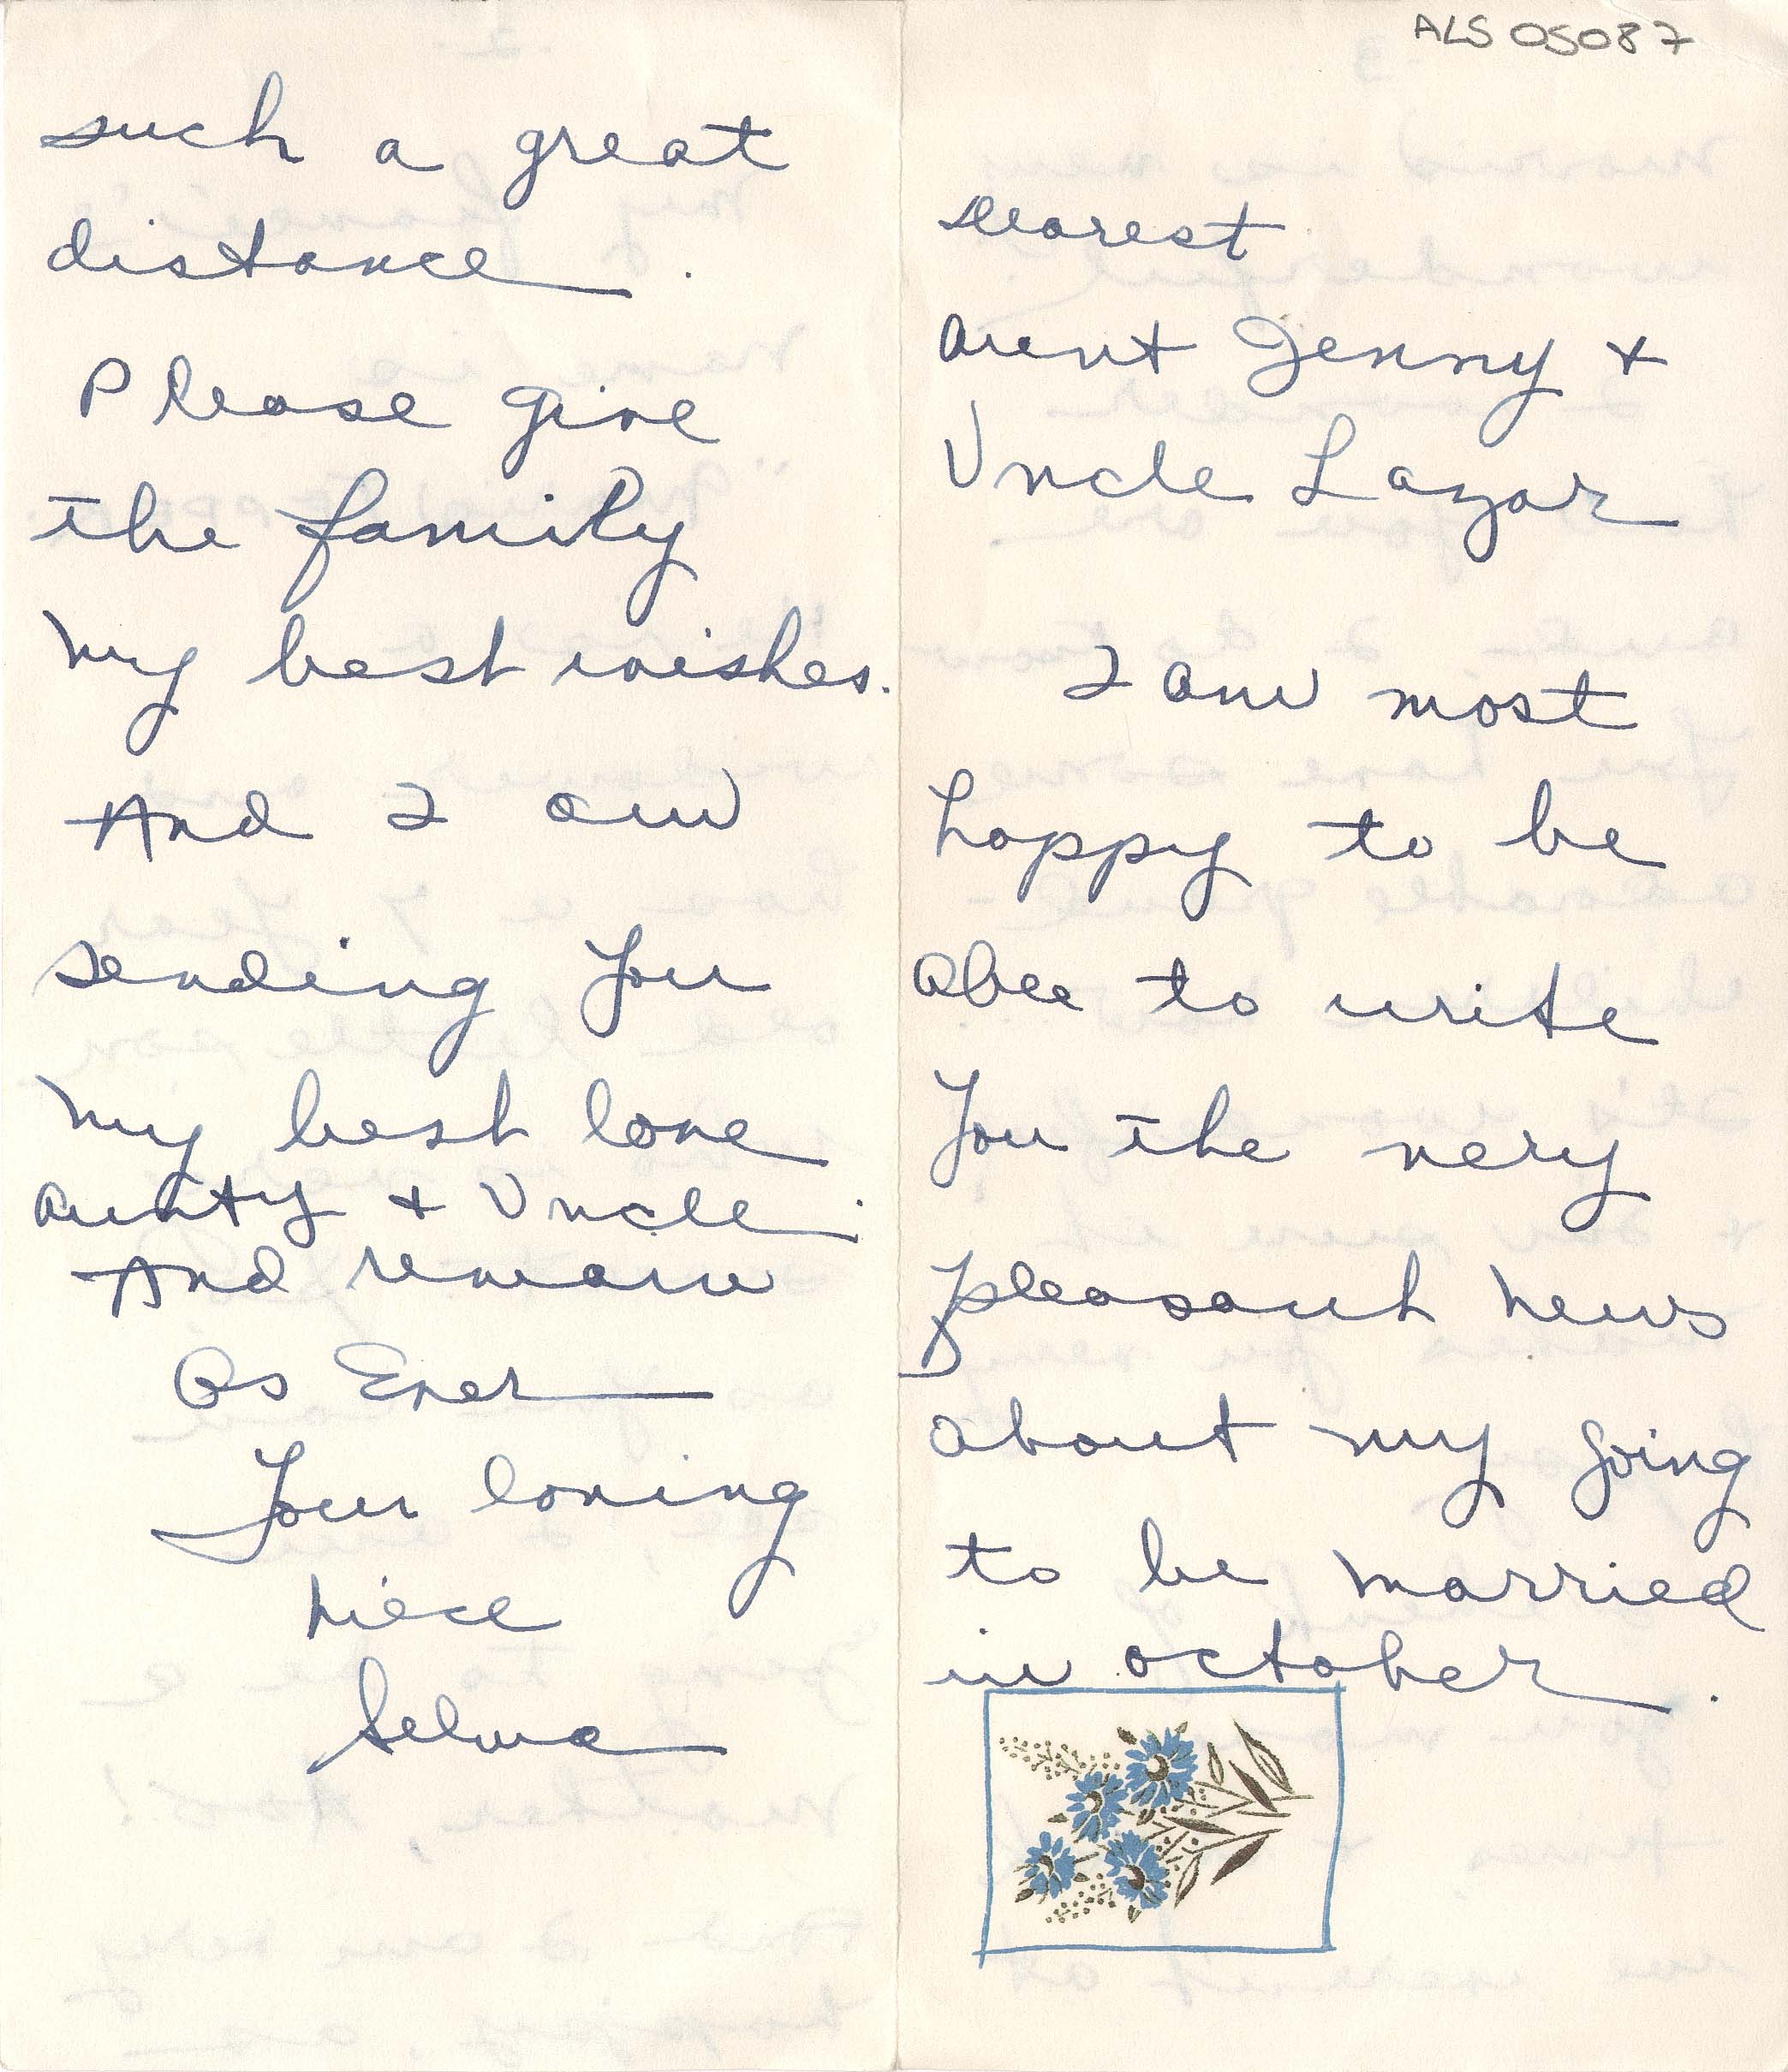 ALS 05087
Dearest
Aunt Jenny +
Uncle Lazar
I am most
happy to be
able to write
you the very
pleasant news
about my going
to be married
in October.
such a great
distance.
Please give
the family
my best wishes.
And I am
sending you
my best love
Aunty + Uncle.
And remain
As Ever
Your loving
niece
Selma